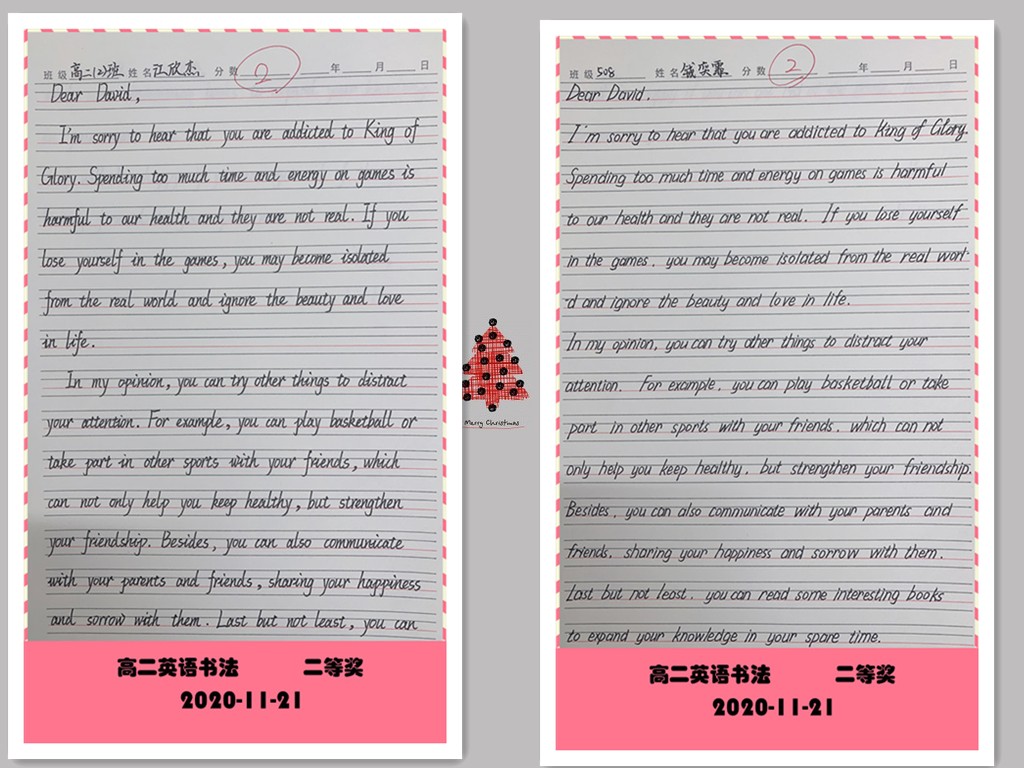 班级 高二(2)班 姓名 江欣杰 分数 2 年 月 日
Dear David,
I'm sorry to hear that you are addicted to King of
Glory. Spending too much time and energy on games is
harmful to our health and they are not real. If you
lose yourself in the games, you may become isolated
from the real world and ignore the beauty and love
in life.
In my opinion, you can try other things to distract
your attention. For example, you can play basketball or
take part in other sports with your friends, which
can not only help you keep healthy, but strengthen
your friendship. Besides, you can also communicate
with your parents and friends, sharing your happiness
and sorrow with them. Last but not least, you can
高二英语书法 二等奖
2020-11-21
Merry Christmas
班级 508 姓名 钱奕霖 分数 2 年 月 日
Dear David.
I'm sorry to hear that you are addicted to King of Glory.
Spending too much time and energy on games is harmful
to our health and they are not real. If you lose yourself
in the games, you may become isolated from the real worl-
d and ignore the beauty and love in life.
In my opinion, you can try other things to distract your
attention. For example, you can play basketball or take
part in other sports with your friends, which can not
only help you keep healthy, but strengthen your friendship.
Besides, you can also communicate with your parents and
friends, sharing your happiness and sorrow with them.
Last but not least, you can read some interesting books
to expand your knowledge in your spare time.
高二英语书法 二等奖
2020-11-21